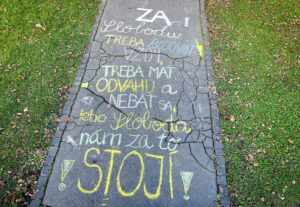 ZA
Slobodu
TREBA bojovať
VŽDY,
TREBA MAŤ
ODVAHU a
NEBÁŤ SA,
lebo Sloboda
nám za to
! STOJÍ !